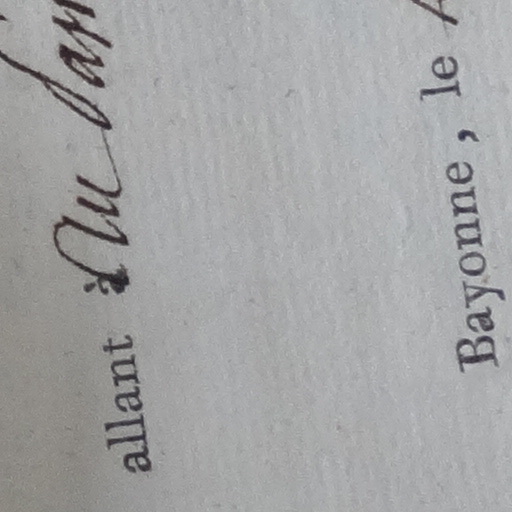 allant à Au
Bayonne, le